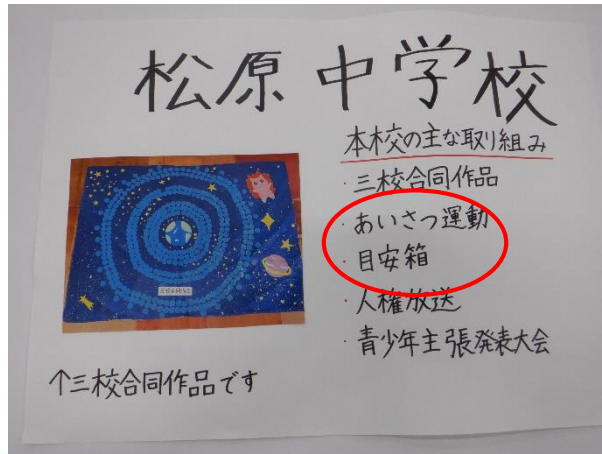 松原中学校
本校の主な取り組み
・三校合同作品
・あいさつ運動
・目安箱
・人権放送
・青少年主張発表大会
↑三校合同作品です